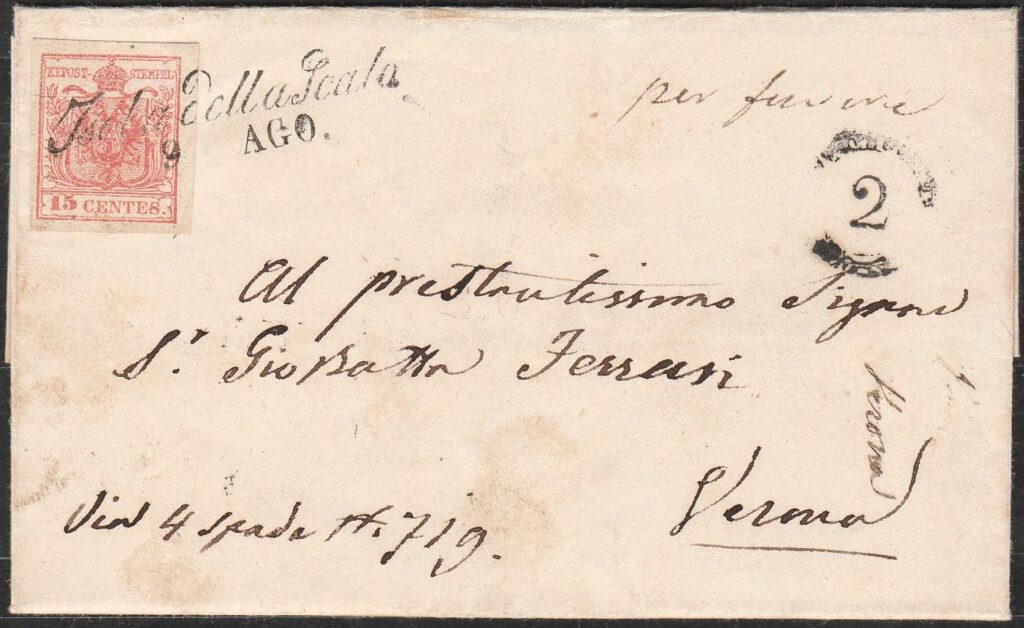 KEPOST-STEMPEL
15 CENTES.
Isola Della Scala
9 AGO.
per
2
Al prestantissimo Signore
Sr. Gio Batta Ferrari
Verona
Verona
Via 4 spade N. 719.